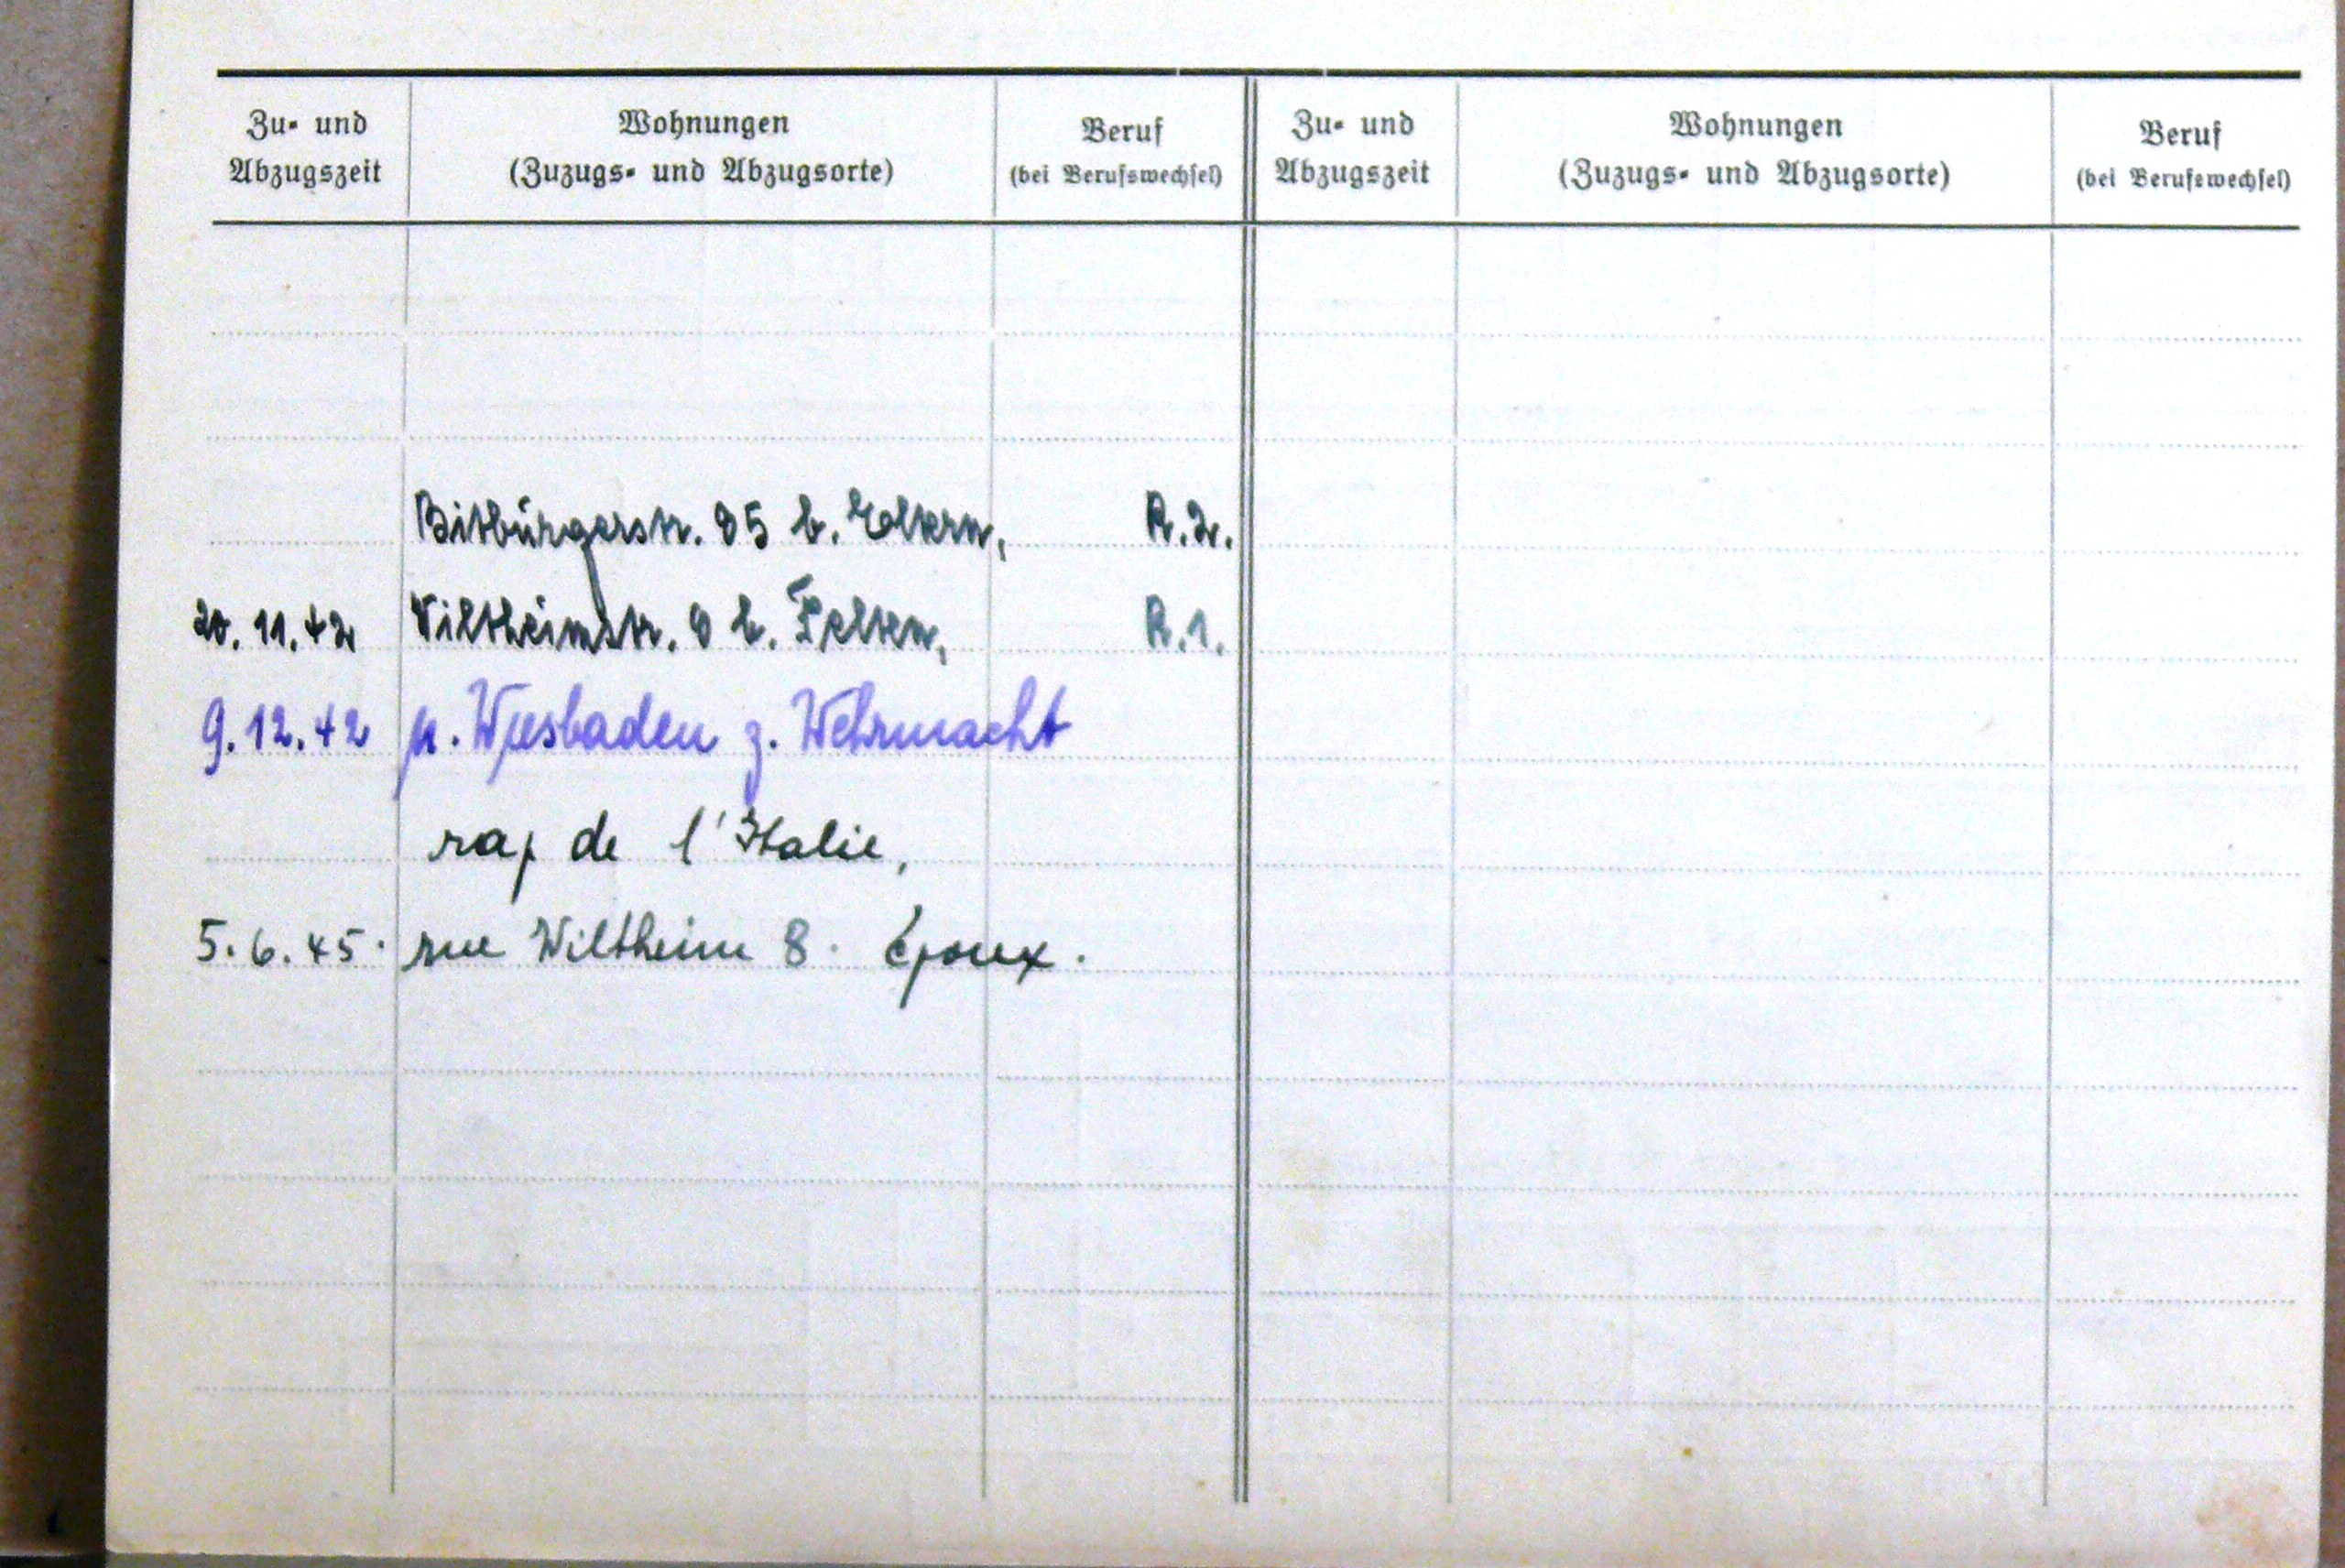 Zu- und Abzugszeit
Wohnungen
(Zuzugs- und Abzugsorte)
Beruf
(bei Berufswechsel)
Zu- und Abzugszeit
Wohnungen
(Zuzugs- und Abzugsorte)
Beruf
(bei Berufswechsel)
Bitbürgerstr. 35 b. Eltern, R.2.
20.11.42 Wiltheimstr. 8 b. Felten, R.1.
9.12.42 n. Wiesbaden z. Wehrmacht
rap de l'Italie,
5.6.45. rue Wiltheim 8. Époux.